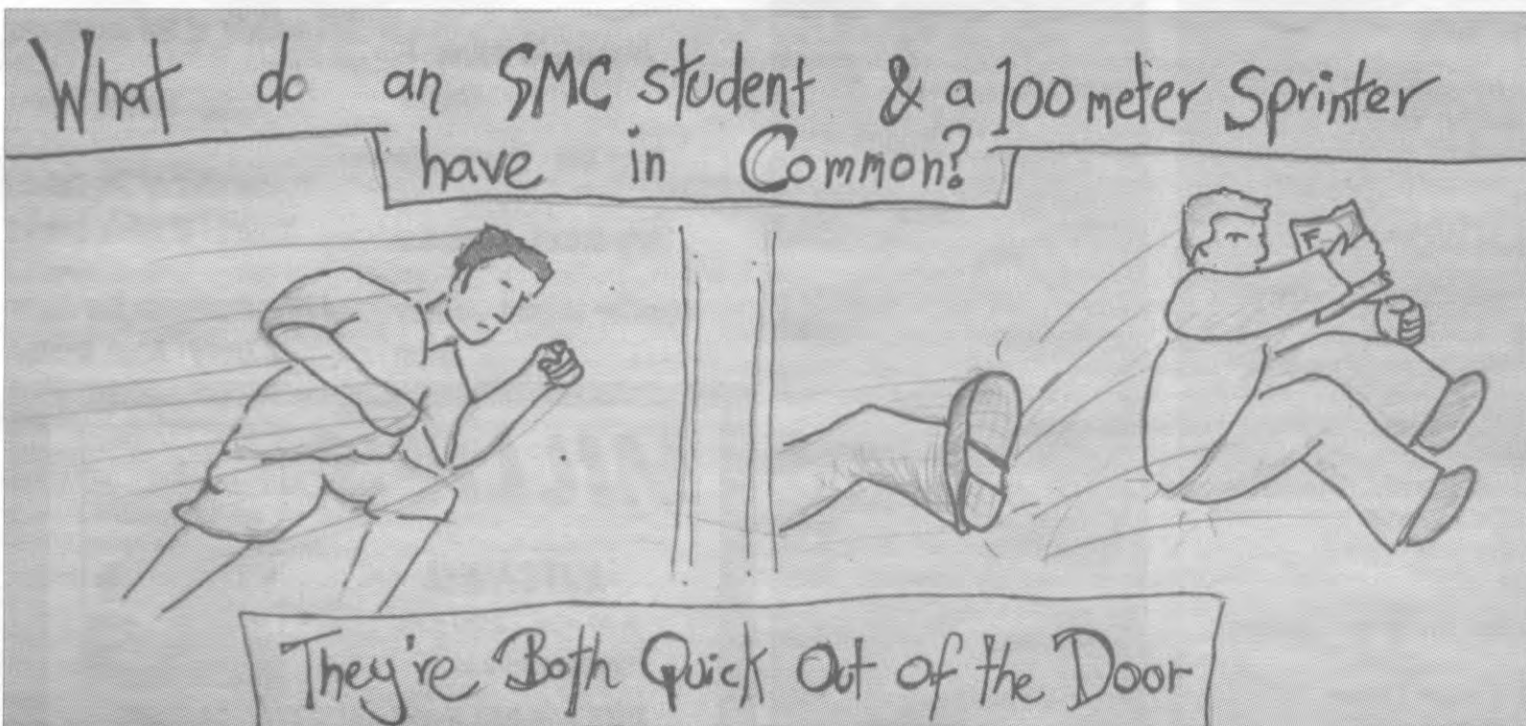 What do an SMC student & a 100 meter Sprinter
have in Common?
F
They're Both Quick Out of the Door